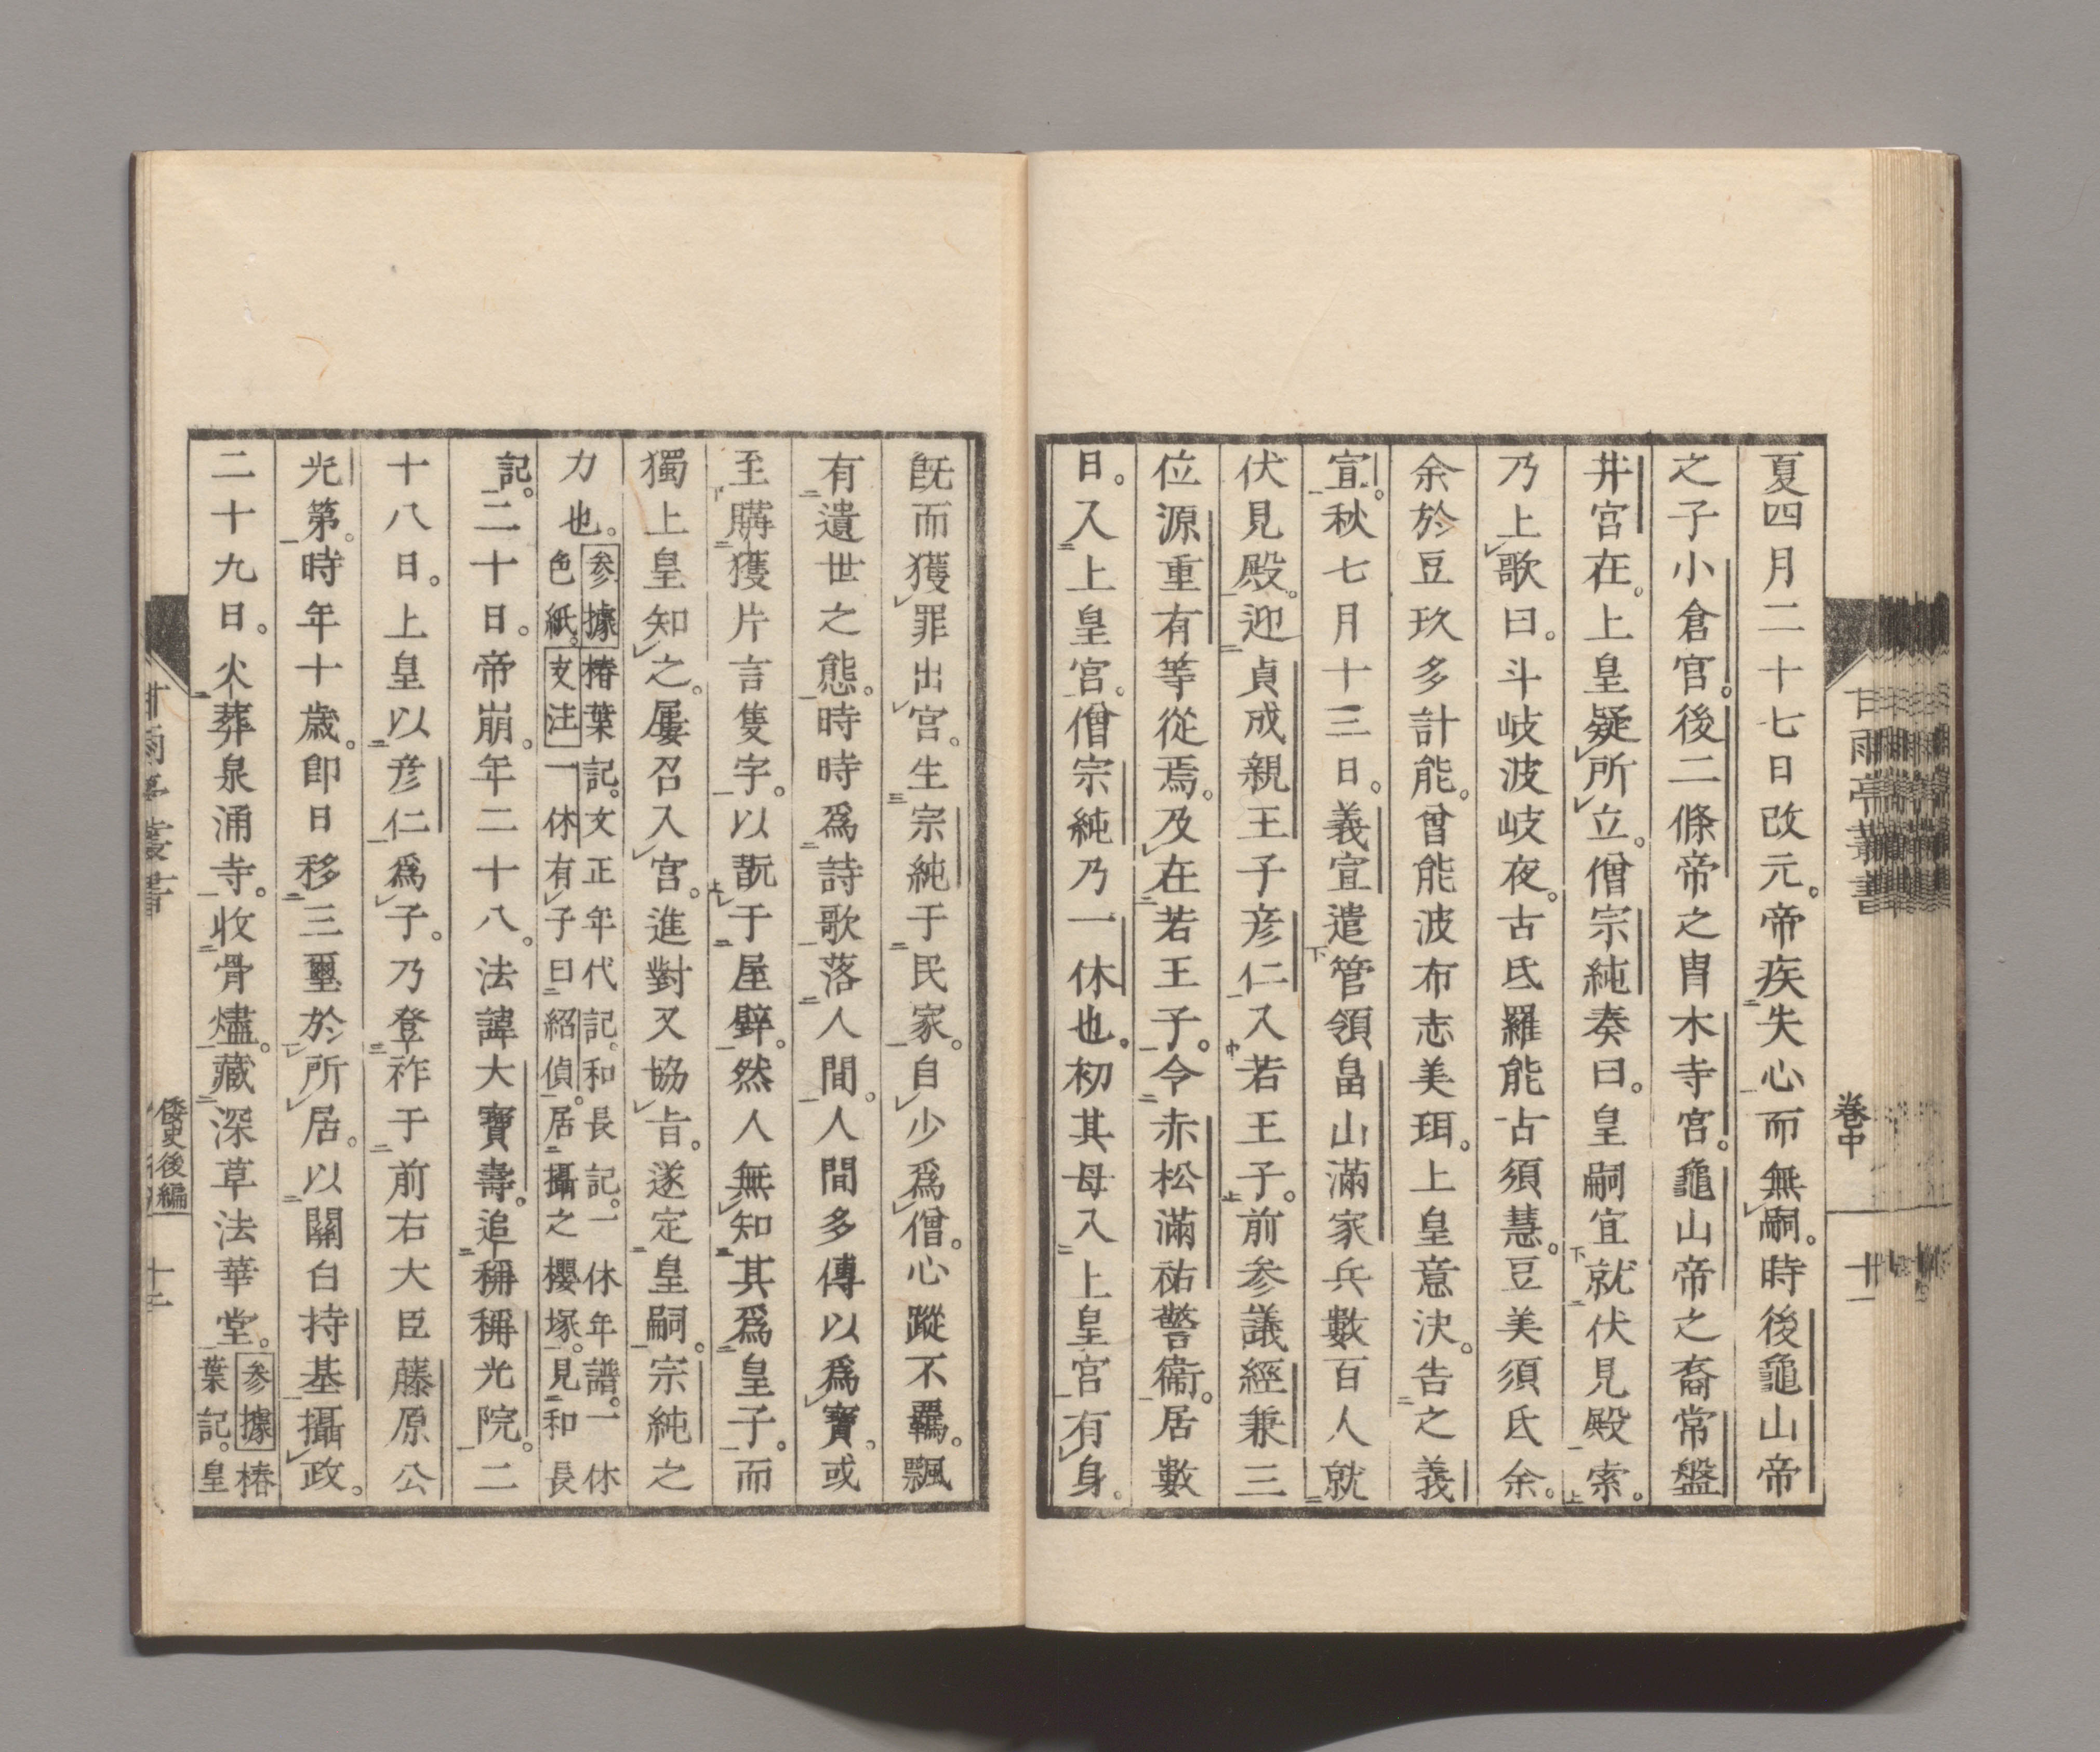 甘雨亭叢書
卷中
十一
夏四月二十七日改元。帝疾失心而無嗣。時後龜山帝
之子小倉宮。後二條帝之冑木寺宮。龜山帝之裔常盤
井宮在。上皇疑所立。僧宗純奏曰。皇嗣宜就伏見殿索。
乃上歌曰。斗岐波岐夜。古氐羅能占須慧。豆美須氐余。
余於豆玖多計能。曾能波布志美珥。上皇意決。告之義
宣。秋七月十三日。義宣遣管領畠山滿家兵數百人就
伏見殿。迎貞成親王子彥仁入若王子。前參議經兼三
位源重有等從焉。及在若王子。令赤松滿祐警衞。居數
日。入上皇宮。僧宗純乃一休也。初其母入上皇宮有身。
旣而獲罪出宮。生宗純于民家。自少爲僧。心蹤不羈。飄
有遺世之態。時時爲詩歌落人間。人間多傳以爲寶。或
至購獲片言隻字。以翫于屋壁。然人無知其爲皇子。而
獨上皇知之。屢召入宮。進對又協旨。遂定皇嗣。宗純之
力也。參據椿葉記。文正年代記。和長記。一休年譜。一休
色紙。支注一休有子曰紹偵。居攝之櫻塚。見和長
記。二十日。帝崩。年二十八。法諱大寶壽。追稱稱光院。二
十八日。上皇以彥仁爲子。乃登祚于前右大臣藤原公
光第。時年十歲。卽日移三璽於所居。以關白持基攝政。
二十九日。火葬泉涌寺。收骨燼。藏深草法華堂。參據椿
葉記。皇
甘雨亭叢書
倭史後編
十二